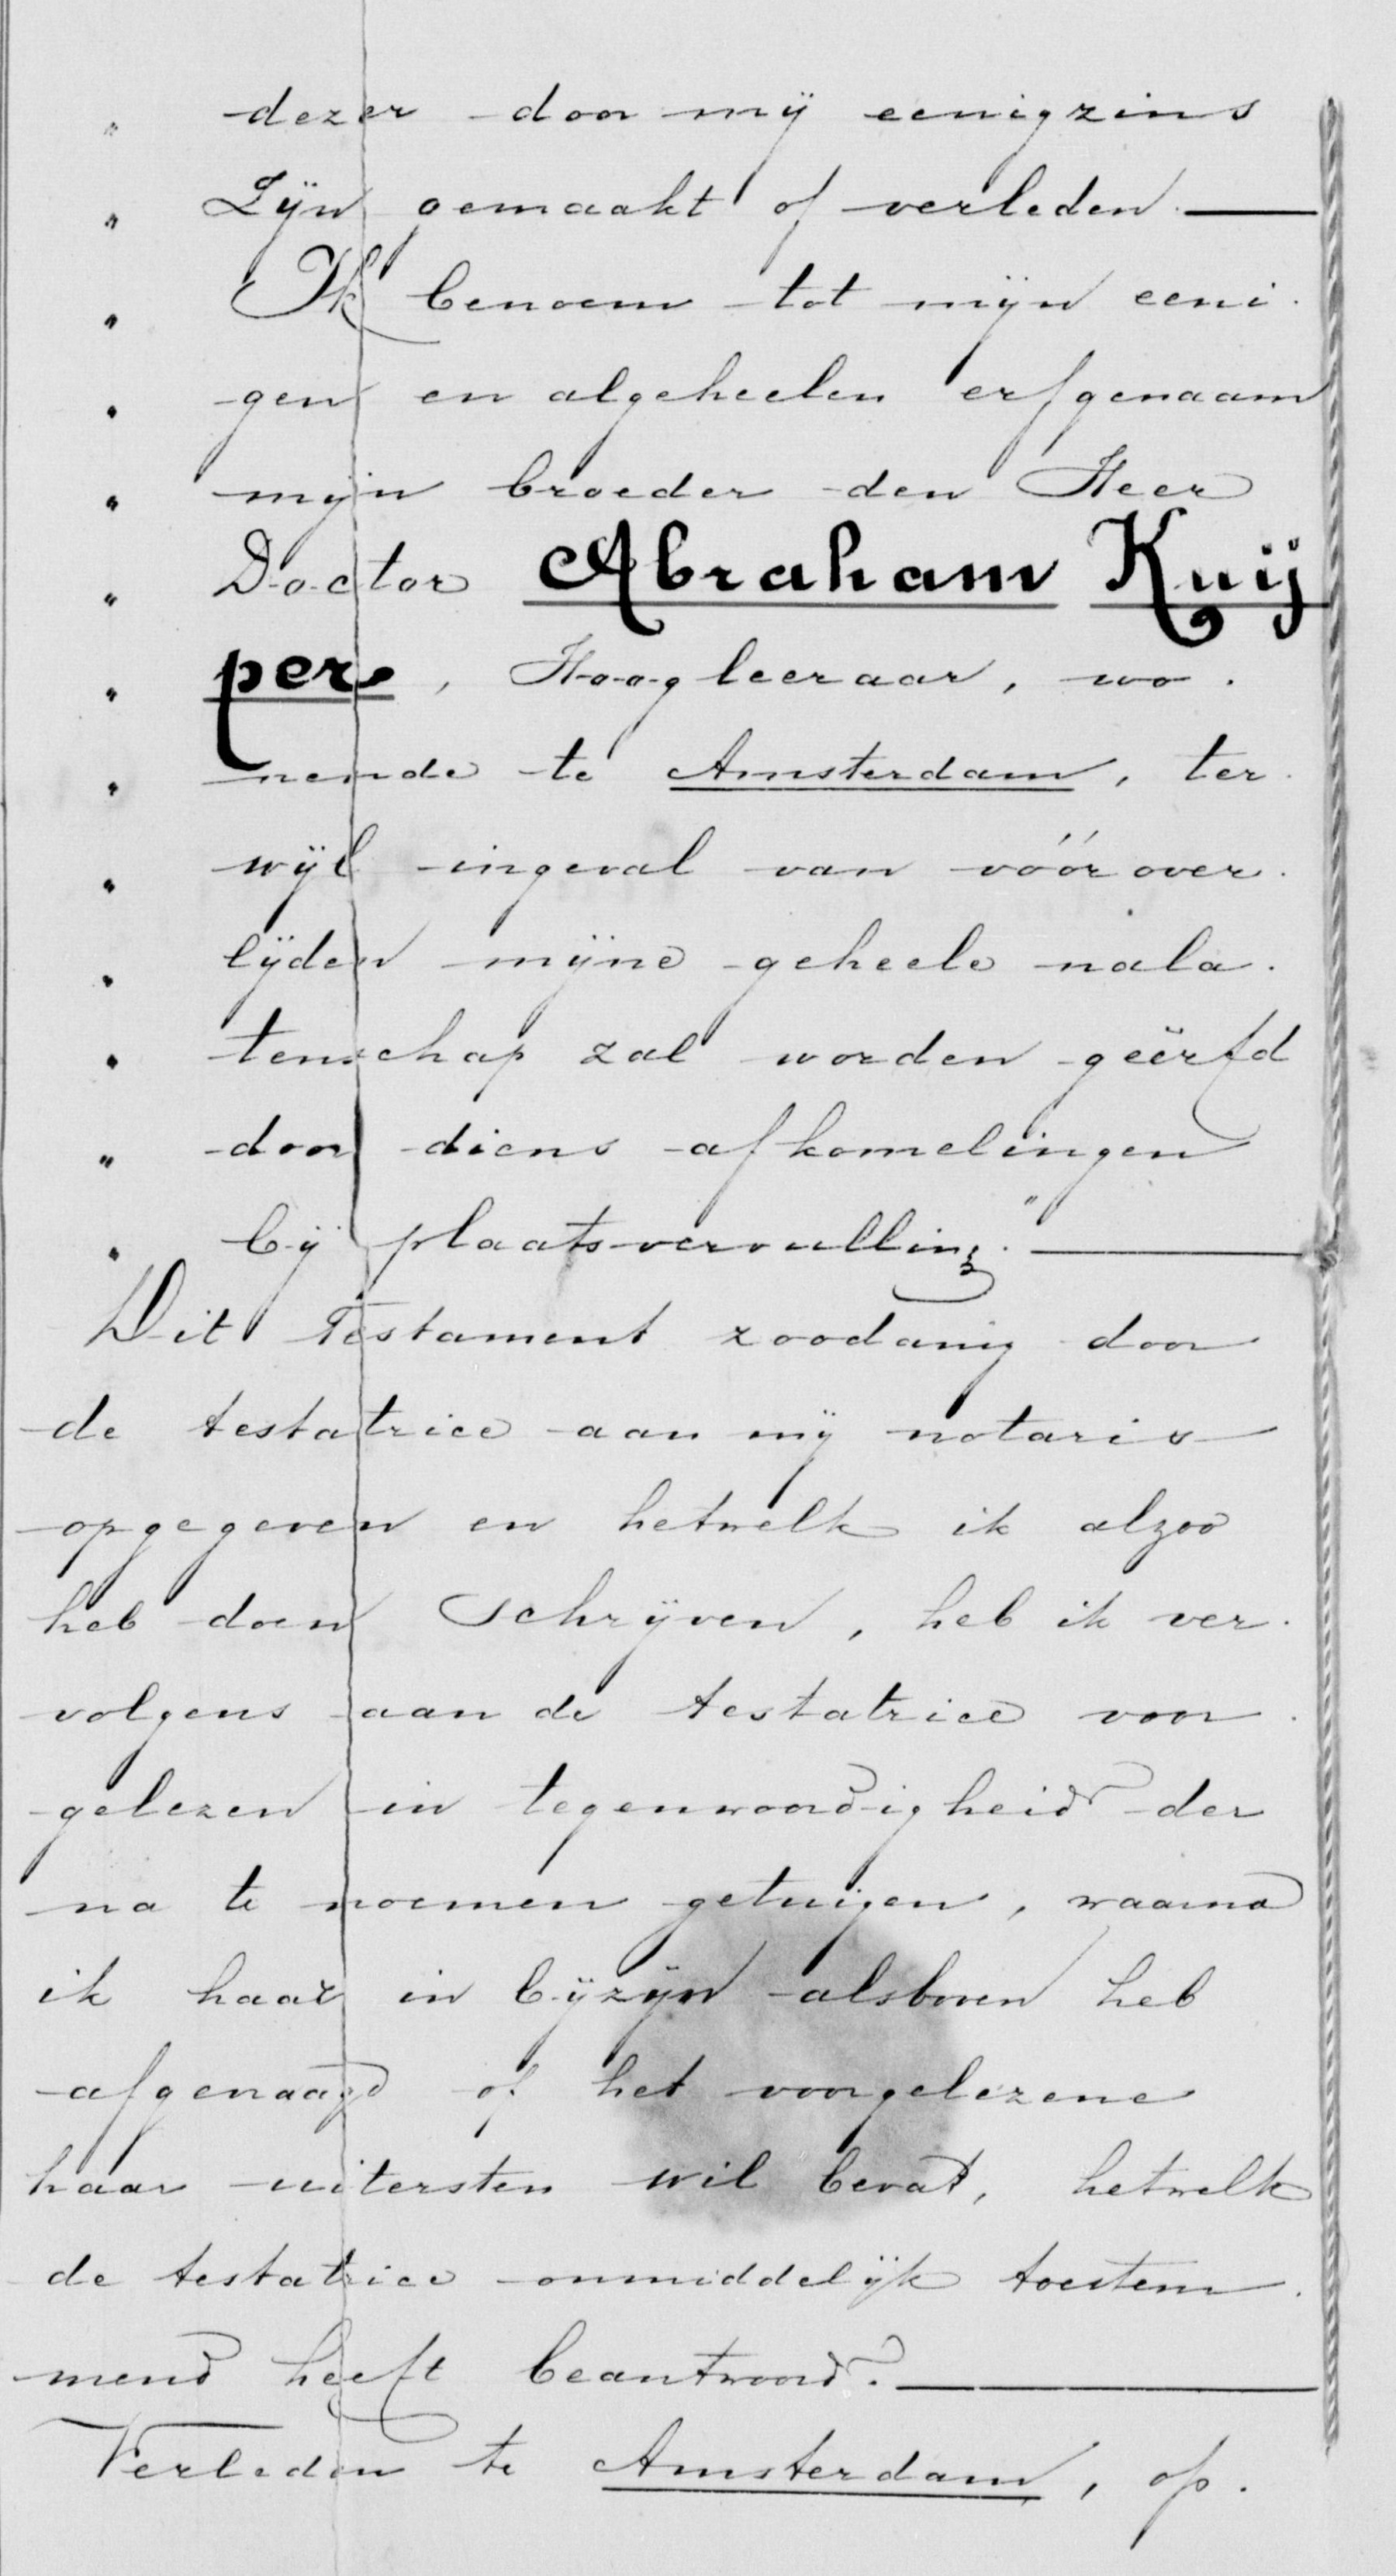 " dezer door mij eenigzins
" Zijn gemaakt of verleden. —
" Ik benoem tot mijn eeni-
" gen en algeheelen erfgenaam
" mijn broeder den Heer
" Doctor Abraham Kuij
" per, Hoogleeraar, wo-
" nende te Amsterdam, ter-
" wijl ingeval van vóóróver-
" lijden mijne geheele nala-
" tenschap zal worden geërfd
" door diens afkomelingen
" bij plaatsvervulling." —
Dit Testament zoodanig door
de testatrice aan mij notaris
opgegeven en hetwelk ik alzoo
heb doen schrijven, heb ik ver-
volgens aan de testatrice voor-
gelezen in tegenwoordigheid der
na te noemen getuigen, waarna
ik haar in bijzijn alsboven heb
afgevraagd of het voorgelezene
haar uitersten wil bevat, hetwelk
de testatrice onmiddelijk toestem-
mend heeft beantwoord. —
Verleden te Amsterdam, op-